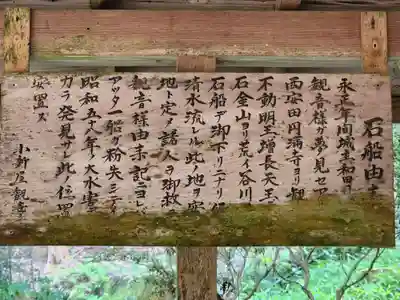 石船由来
永正年間城主和田
観音様ガ夢ノ見セ
西安田円満寺ヨリ観
不動明王増長天王
石金山ヨリ荒川谷川
石船デ御下リニナリ
清水流レル此ノ地ヲ安
地ト定メ諸人ヲ御救
観音様由来記ニヨレバ
アッタ一船ガ紛失シテ
昭和五十八年ノ大水害
カラ発見サレ此ノ位置
安置ス
小針屋観音